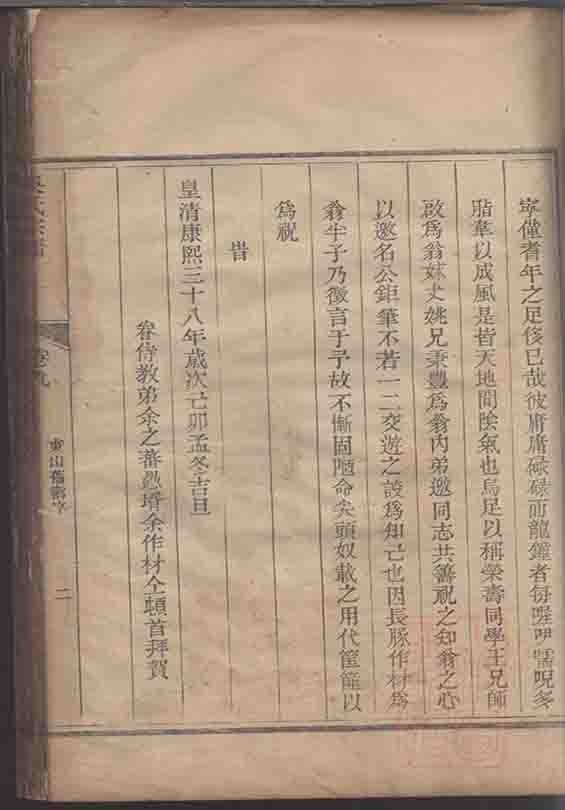 寧僅耆年之足後已哉彼庸庸碌碌而龍鐘者每喔咿嚅呪多
脂韋以成風是皆天地間陰氣也烏足以稱榮壽同學王兄師
啟為翁妹丈姚兄秉豐為翁內弟邀同志共籌祝之知翁之心
以邀名公鉅筆不若一二交遊之設為知己也因長豚作材為
翁半子乃徵言于予故不慚固陋命尖頭奴載之用代筐篚以
為祝
旹
皇清康熙三十八年歲次己卯孟冬吉旦
眷侍教弟余之蕃愚壻余作材仝頓首拜賀
氏宗譜
卷九
二